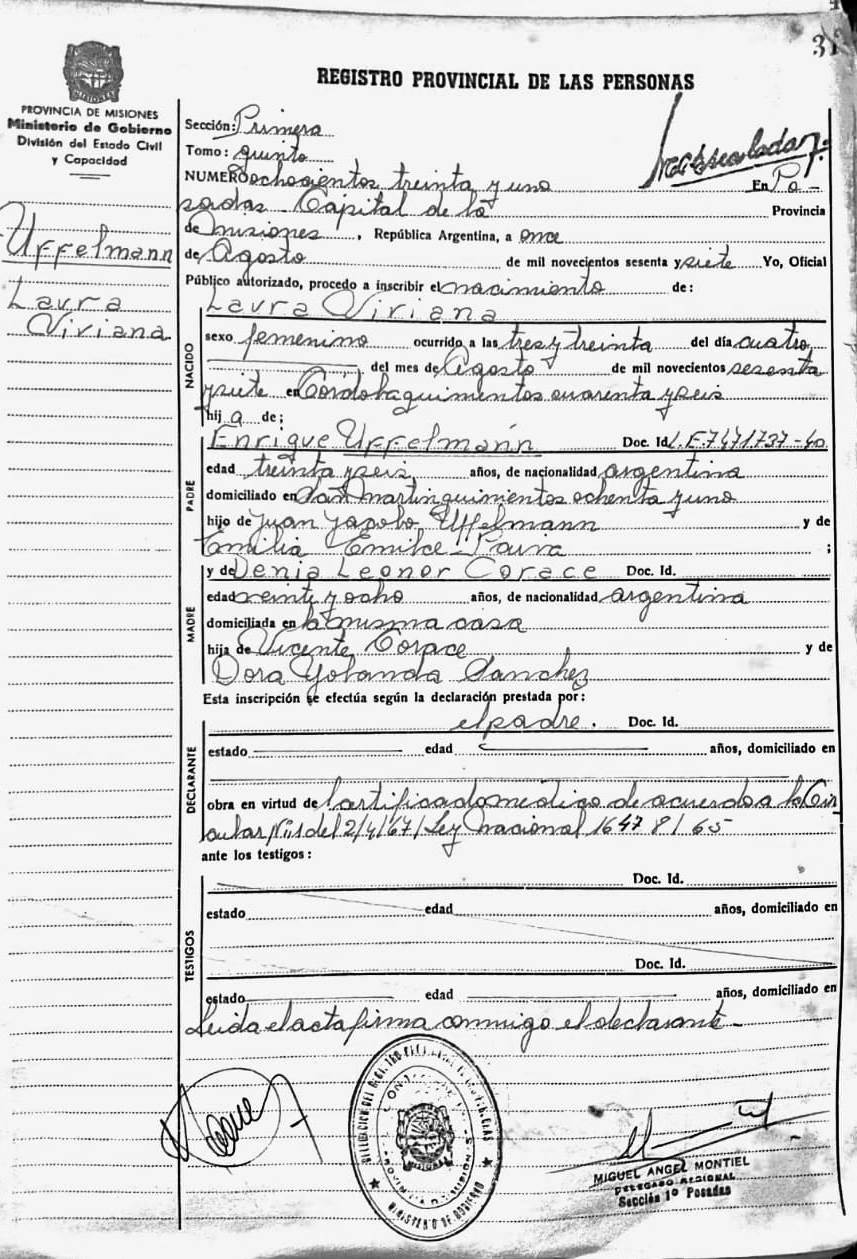 31
REGISTRO PROVINCIAL DE LAS PERSONAS
PROVINCIA DE MISIONES
Ministerio de Gobierno
División del Estado Civil
y Capacidad
Uffelmann
Laura
Viviana
Sección: Primera
Tomo: quinto
NUMERO ochocientos treinta y uno En Po-
sadas Capital de la Provincia
de Misiones, República Argentina, a once
de Agosto de mil novecientos sesenta y siete Yo, Oficial
Público autorizado, procedo a inscribir el nacimiento de:
NACIDO
Laura Viviana
sexo femenino ocurrido a las tres y treinta del día cuatro
del mes de Agosto de mil novecientos sesenta
y siete en Cordoba quinientos cuarenta y seis
hij a de:
PADRE
Enrique Uffelmann Doc. Id. L.E. 7471737-
edad treinta y seis años, de nacionalidad argentina
domiciliado en San Martin quinientos ochenta y uno
hijo de Juan Jacobo Uffelmann y de
Emilia Emilce ;
MADRE
y de Denia Leonor Corace Doc. Id.
edad veinte y ocho años, de nacionalidad argentina
domiciliada en la misma casa
hija de Vicente Corace y de
Dora Yolanda Sanchez
Esta inscripción se efectúa según la declaración prestada por:
DECLARANTE
el padre. Doc. Id.
estado edad años, domiciliado en
obra en virtud de Certificado medico de acuerdo a la Cir
cular Nº1 del 2/4/67/ Ley Nacional 16478/65
ante los testigos:
TESTIGOS
Doc. Id.
estado edad años, domiciliado en
Doc. Id.
estado edad años, domiciliado en
Leida el acta firma conmigo el declarante-
DELEGACION DEL REGISTRO PROVINCIAL DE LAS PERSONAS
PROVINCIA DE MISIONES
MINISTERIO DE GOBIERNO
MIGUEL ANGEL MONTIEL
DELEGADO REGIONAL
Sección 1º Posadas